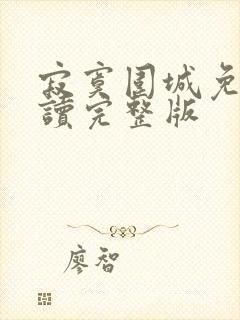 寂寞圍城免
讀完整版
廖智